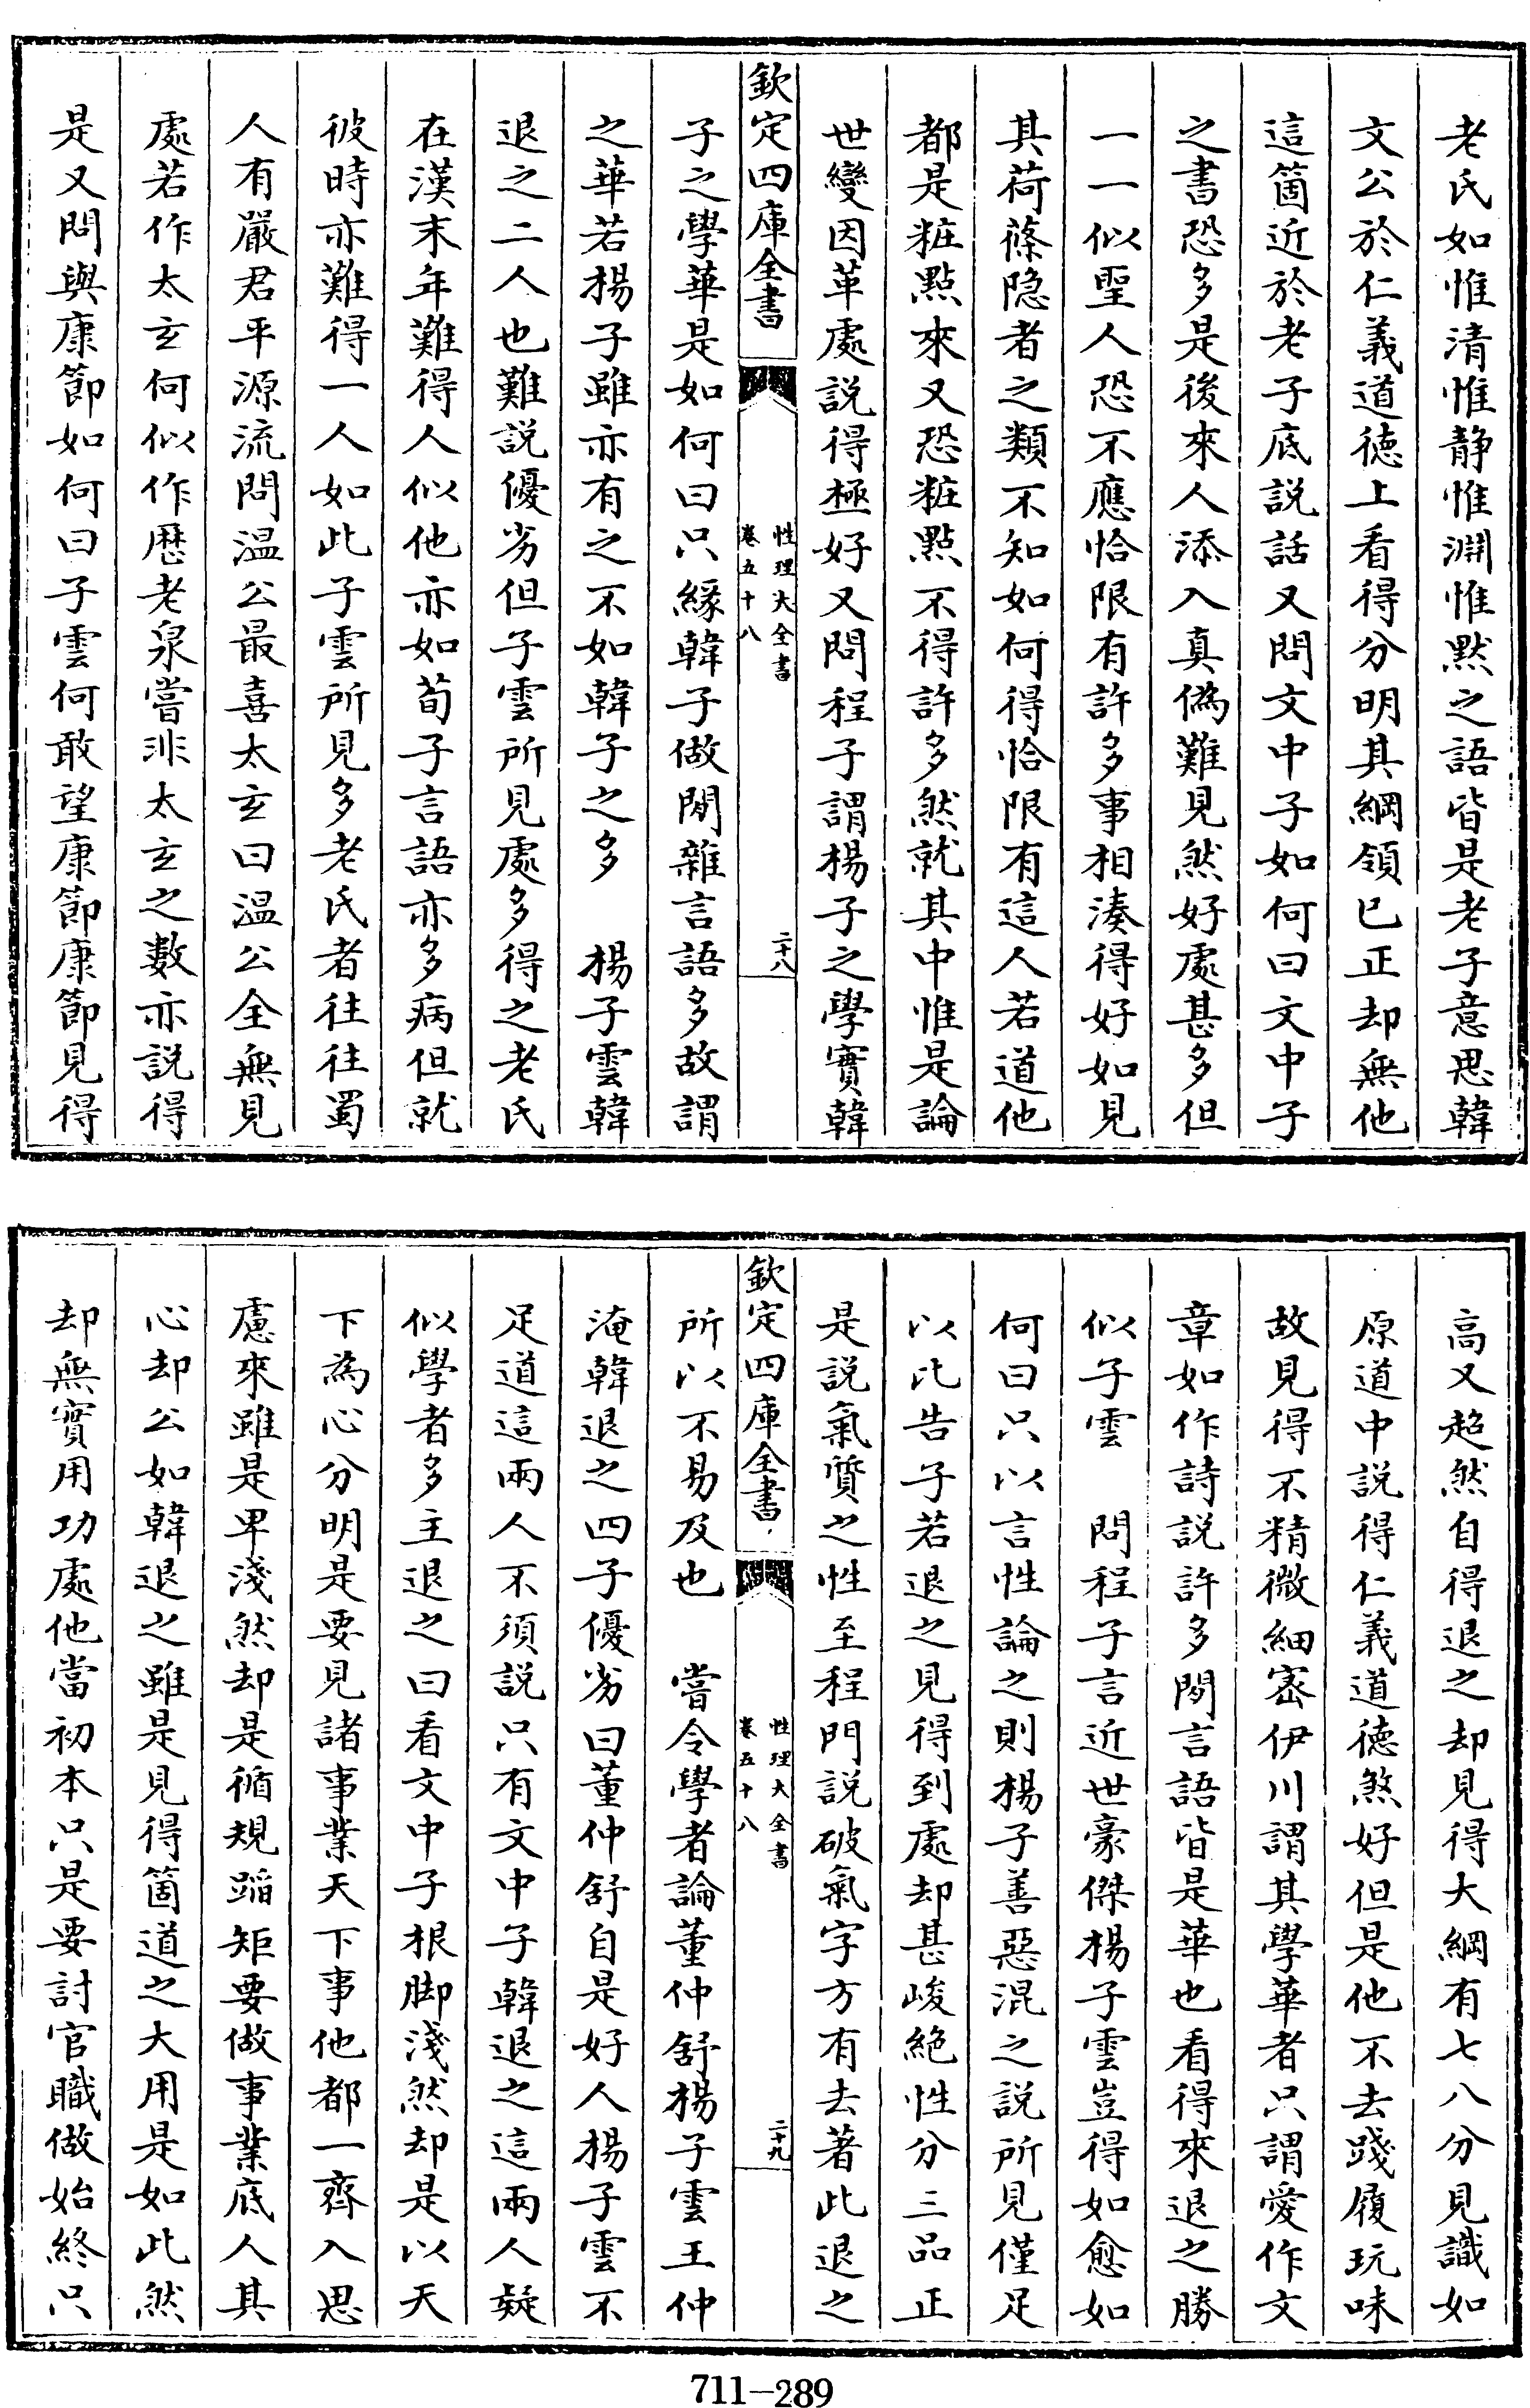 老氏如惟清惟静惟淵惟默之語皆是老子意思韓
文公於仁義道徳上看得分明其綱領已正却無他
這箇近於老子底説話又問文中子如何曰文中子
之書恐多是後來人添入真偽難見然好處甚多但
一一似聖人恐不應恰限有許多事相湊得好如見
其荷蓧隐者之類不知如何得恰限有這人若道他
都是粧點來又恐粧點不得許多然就其中惟是論
世變因革處説得極好又問程子謂楊子之學實韓
欽定四庫全書
性理大全書
卷五十八
二十八
子之學華是如何曰只緣韓子做閒雜言語多故謂
之華若楊子雖亦有之不如韓子之多 楊子雲韓
退之二人也難説優劣但子雲所見處多得之老氏
在漢末年難得人似他亦如荀子言語亦多病但就
彼時亦難得一人如此子雲所見多老氏者往往蜀
人有嚴君平源流問温公最喜太玄曰温公全無見
處若作太玄何似作厯老泉嘗非太玄之數亦説得
是又問與康節如何曰子雲何敢望康節康節見得
高又超然自得退之却見得大綱有七八分見識如
原道中説得仁義道徳煞好但是他不去踐履玩味
故見得不精微細宻伊川謂其學華者只謂愛作文
章如作詩説許多閒言語皆是華也看得來退之勝
似子雲 問程子言近世豪傑楊子雲豈得如愈如
何曰只以言性論之則楊子善惡混之説所見僅足
以比告子若退之見得到處却甚峻絶性分三品正
是説氣質之性至程門説破氣字方有去著此退之
欽定四庫全書
性理大全書
卷五十八
二十九
所以不易及也 嘗令學者論董仲舒楊子雲王仲
淹韓退之四子優劣曰董仲舒自是好人楊子雲不
足道這兩人不須説只有文中子韓退之這兩人疑
似學者多主退之曰看文中子根脚淺然却是以天
下為心分明是要見諸事業天下事他都一齊入思
慮來雖是卑淺然却是循規蹈矩要做事業底人其
心却公如韓退之雖是見得箇道之大用是如此然
却無實用功處他當初本只是要討官職做始終只
711-289